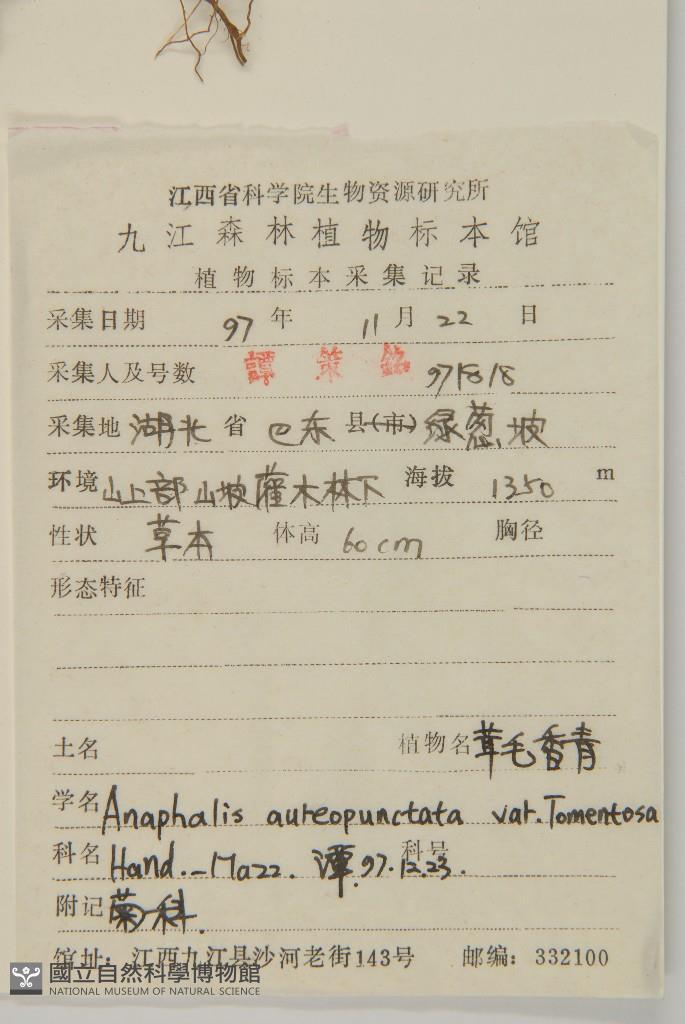 江西省科学院生物资源研究所
九江森林植物标本馆
植物标本采集记录
采集日期 97年 11月 22 日
采集人及号数 譚策铭 971818
采集地 湖北省 巴东县(市) 绿葱坡
环境 山上部山坡灌木林下 海拔 1350 m
性状 草本 体高 60cm 胸径
形态特征
土名 植物名 茸毛香青
学名 Anaphalis aureopunctata var. Tomentosa
科名 Hand.-Mazz. 谭.97.12.23. 科号
附记 菊科.
馆址:江西九江县沙河老街143号 邮编:332100
國立自然科學博物館
NATIONAL MUSEUM OF NATURAL SCIENCE